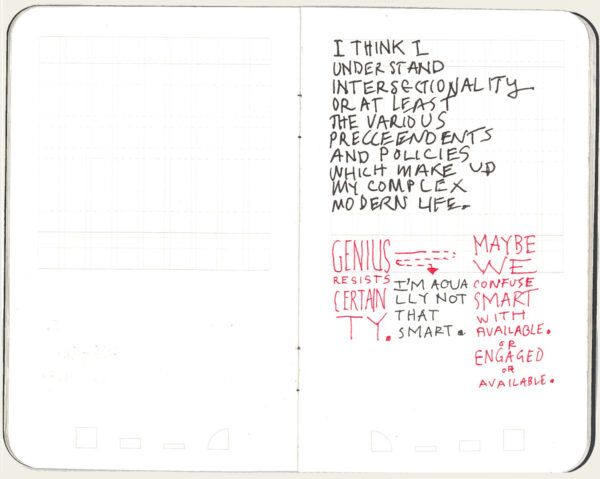 I THINK I
UNDERSTAND
INTERSECTIONALITY
OR AT LEAST
THE VARIOUS
PRECCEENDENTS
AND POLICIES
WHICH MAKE UP
MY COMPLEX
MODERN LIFE.
GENIUS
RESISTS
CERTAIN
TY.
I'M AQUA
LLY NOT
THAT
SMART.
MAYBE
WE
CONFUSE
SMART
WITH
AVAILABLE.
OR
ENGAGED
OR
AVAILABLE.